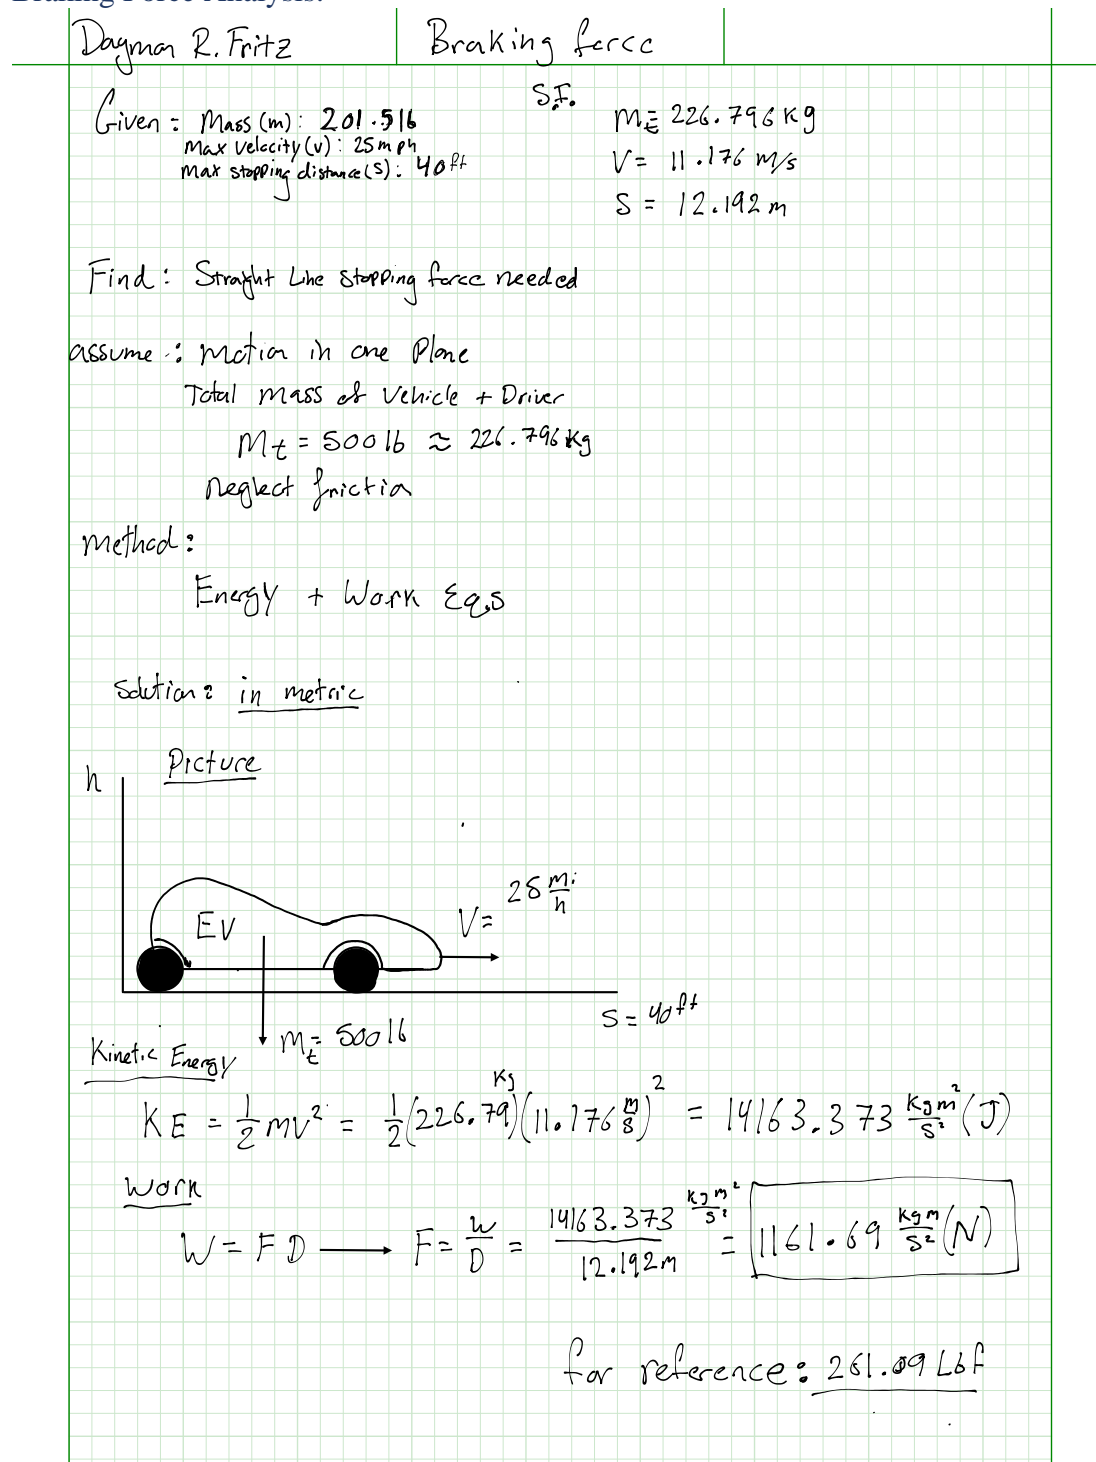 Braking Force Analysis:
Dagman R. Fritz
Braking force
Given: Mass (m): 201.5lb
Max velocity (v): 25mph
Max stopping distance (s): 40ft
S.I.
Mt = 226.796 Kg
V = 11.176 m/s
S = 12.192 m
Find: Straight Line Stopping force needed
assume: Motion in one Plane
Total mass of Vehicle + Driver
Mt = 500lb ≈ 226.796 Kg
neglect friction
Method:
Energy + Work Eq,s
Solution: in metric
Picture
h
EV
V = 25 mi/h
S = 40ft
Mt = 500lb
Kinetic Energy
KE = 1/2 mv² = 1/2 (226.79 Kg)(11.176 m/s)² = 14163.373 Kgm²/s² (J)
Work
W = FD → F = W/D = 14163.373 Kgm²/s² / 12.192m = 1161.69 Kgm/s² (N)
for reference: 261.09 Lbf